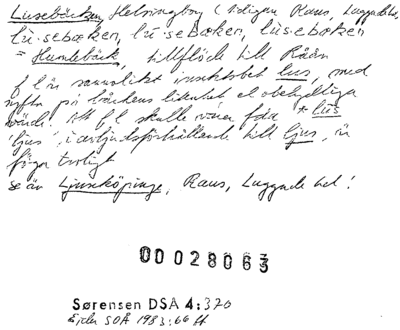 Lusebäcken, Helsingborg (tidigare Raus, Luggude hd,
lu·sebæken, lù·sebæken, lusebæken
= Humlebäck, tillflöde till Råån
f l är sannolikt insektsbet lus, med
syfte på bäckens litenhet el obetydliga
värde. Att f l skulle vara fda *lus
'ljus', i avljudsförhållande till ljus, är
föga troligt
se än Ljuseköpinge, Raus, Luggude hd!
00028063
Sørensen DSA 4:320
Ejder SOÅ 1983:66 ff